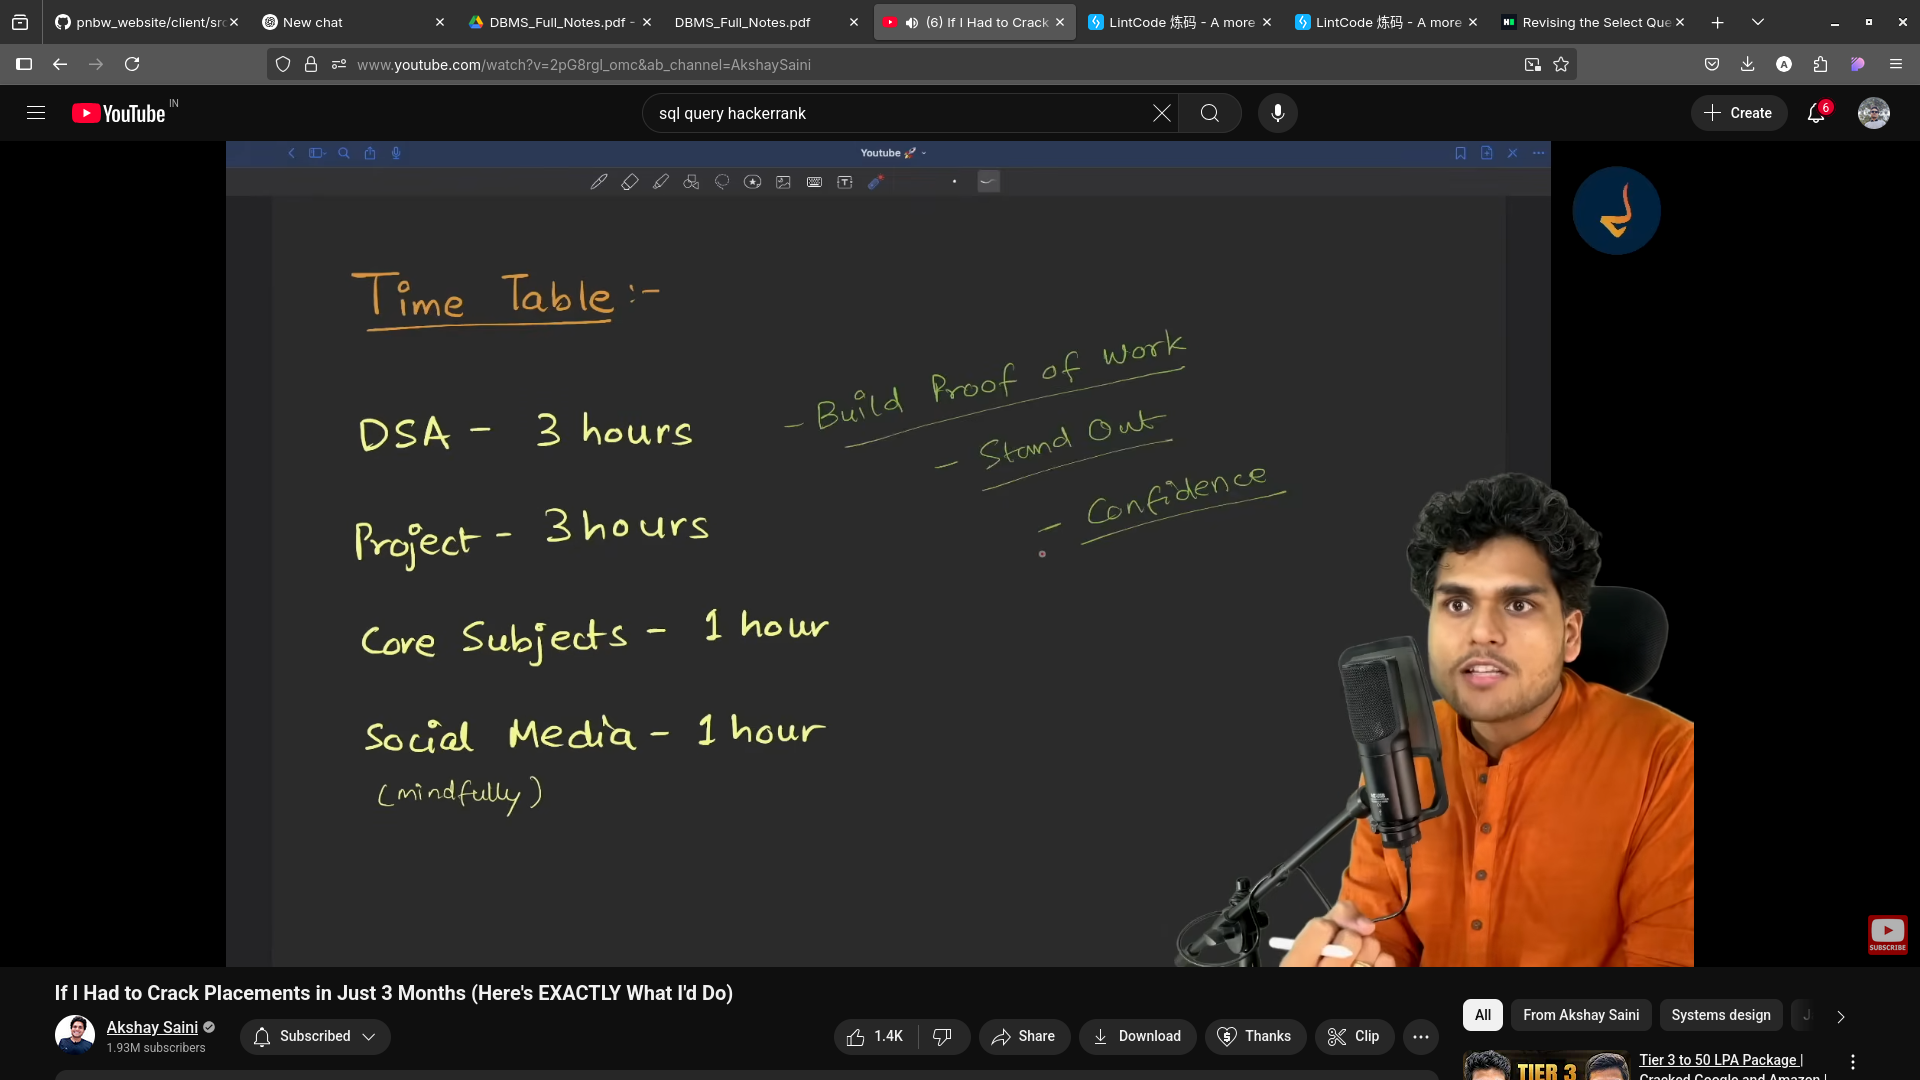 pnbw_website/client/src
New chat
DBMS_Full_Notes.pdf -
DBMS_Full_Notes.pdf
(6) If I Had to Crack
LintCode 炼码 - A more
LintCode 炼码 - A more
Revising the Select Que
www.youtube.com/watch?v=2pG8rgl_omc&ab_channel=AkshaySaini
A
YouTube IN
sql query hackerrank
Create
6
Youtube 🚀
Time Table :-
- Build Proof of Work
DSA - 3 hours
- Stand Out
- Confidence
Project - 3 hours
Core Subjects - 1 hour
Social Media - 1 hour
(mindfully)
SUBSCRIBE
If I Had to Crack Placements in Just 3 Months (Here's EXACTLY What I'd Do)
Akshay Saini
1.93M subscribers
Subscribed
1.4K
Share
Download
Thanks
Clip
All
From Akshay Saini
Systems design
TIER 3
Tier 3 to 50 LPA Package |
Cracked Google and Amazon |